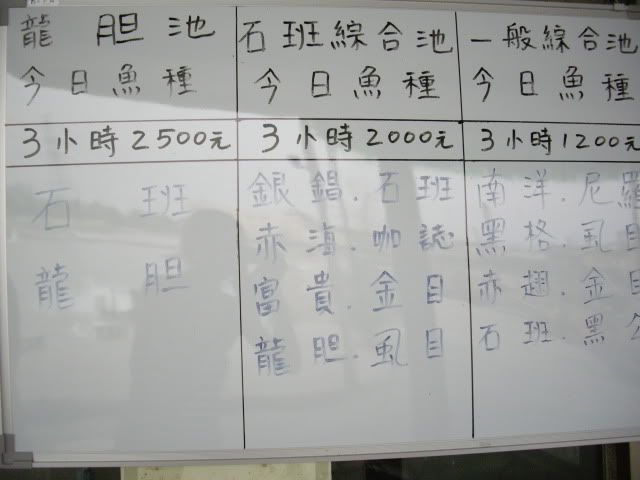 龍 胆 池
今日魚種
3小時2500元
石 班
龍 胆
石班綜合池
今日魚種
3小時2000元
銀鯧.石班
赤海.咖誌
富貴.金目
龍胆.虱目
一般綜合池
今日魚種
3小時1200元
南洋.尼羅
黑格.虱目
赤翅.金目
石班.黑